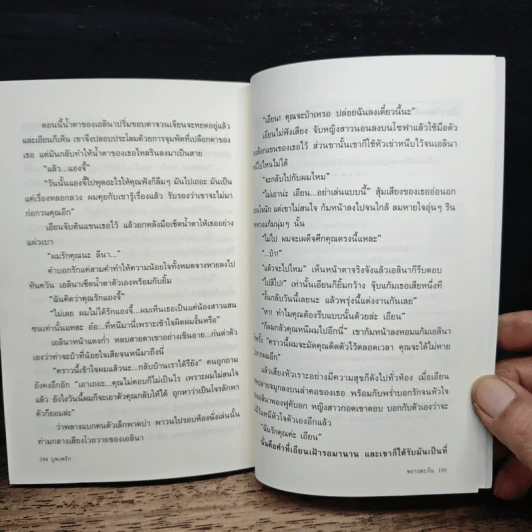 ตอนนี้น้ำตาของเอลินาปริ่มขอบตาจวนเจียนจะหยดอยู่แล้ว
และเอียนก็เห็น เขาจึงปลอบประโลมด้วยการจุมพิตที่เปลือกตาของ
เธอ แต่มันกลับทำให้น้ำตาของเธอไหลรินลงมาเป็นสาย
"แล้ว...แองจี้"
"วันนั้นแองจี้ไปพูดอะไรให้คุณฟังก็ลืมๆ มันไปเถอะ มันเป็น
เรื่องหลอกลวง ผมคุยกับเขารู้เรื่องแล้ว รับรองว่าเขาจะไม่มา
ก่อกวนคุณอีก"
เอียนจับต้นแขนเธอไว้ แล้วยกหลังมือเช็ดน้ำตาให้เธออย่าง
แผ่วเบา
"ผมรักคุณนะ ลินา..."
คำบอกรักแค่สามคำทำให้ความน้อยใจทั้งหมดจางหายลงไป
ทันควัน เอลินาเช็ดน้ำตาตัวเองพร้อมกับยิ้ม
"ฉันคิดว่าคุณรักแองจี้"
"ไม่เลย ผมไม่ได้รักแองจี้...ผมเห็นเธอเป็นแค่น้องสาวแสน
ซนเท่านั้นแหละ อ้อ...ที่หนีมานี่เพราะเข้าใจผิดผมงั้นหรือ"
เอลินาหน้าแดงก่ำ หลบสายตาเขาอย่างเขินอาย...ก่นด่าตัว
เองว่าทำจะบ้าที่น้อยใจเสียจนหนีมาถึงนี่
"คราวนี้เข้าใจผมแล้วนะ...กลับบ้านเราได้รึยัง" คนถูกถาม
ยังคงอึกอัก "เอาเถอะ...คุณไม่ตอบก็ไม่เป็นไร เพราะผมไม่สนใจ
แล้ว ยังไงวันนี้ผมก็จะเอาตัวคุณกลับให้ได้ ถูกหาว่าเป็นโจรลักพา
ตัวก็ยอมล่ะ"
ว่าพลางแบกคนตัวเล็กพาดบ่า พาวนไปรอบห้องนั่งเล่นนั้น
ท่ามกลางเสียงโวยวายของเอลินา
194 บุษบพัก
"เอียน! คุณจะบ้าเหรอ ปล่อยฉันลงเดี๋ยวนี้นะ"
เอียนไม่ฟังเสียง จับหญิงสาวนอนลงบนโซฟาแล้วใช้มือตัว
แขนของเธอไว้ ส่วนขานั้นเขาก็ใช้หัวเข่าหนีบไว้จนเอลินา
ไปไหนไม่ได้
"จะกลับไปกับผมไหม"
"ไม่เอาน่ะ เอียน...อย่าเล่นแบบนี้" สุ้มเสียงของเธออ่อนอก
แต่เขาไม่สนใจ ก้มหน้าลงไปจนใกล้ ลมหายใจอุ่นๆ ริน
แก้มนุ่มๆ นั้น
"ไม่ไป ผมจะเผด็จศึกคุณตรงนี้แหละ"
"..บ้า!"
"แล้วจะไปไหม" เห็นหน้าตาจริงจังแล้วเอลินาก็รีบตอบ
"ไปสิไป" เท่านั้นเอียนก็ยิ้มกว้าง จุ๊บแก้มเธอเสียทีหนึ่ง
กลับวันนี้เลยนะ แล้วพรุ่งนี้แต่งงานกันเลย"
"คะ! ทำไมคุณต้องรีบแบบนั้นด้วยล่ะ เอียน"
"ก้มกลัวคุณหนีผมไปอีกนี่" เขาก้มหน้าลงหอมแก้มเอลินา
"คราวนี้ผมจะมัดคุณติดตัวไว้ตลอดเวลา คุณจะได้ไม่หาย
อีก"
แล้วเสียงหัวเราะอย่างมีความสุขก็ดังไปทั่วห้อง เมื่อเอียน
จมูกลงบนลำคอของเธอ พร้อมกับพร่ำบอกรักจนหัวใจ
เอลินาพองฟูคับอก หญิงสาวกอดเขาตอบ บอกกับตัวเองว่าจะ
หนีหัวใจตัวเองอีกแล้ว
"ฉันรักคุณค่ะ เอียน"
นั่นคือคำที่เอียนเฝ้ารอมานาน และเขาก็ได้รับมันเป็นที่
195